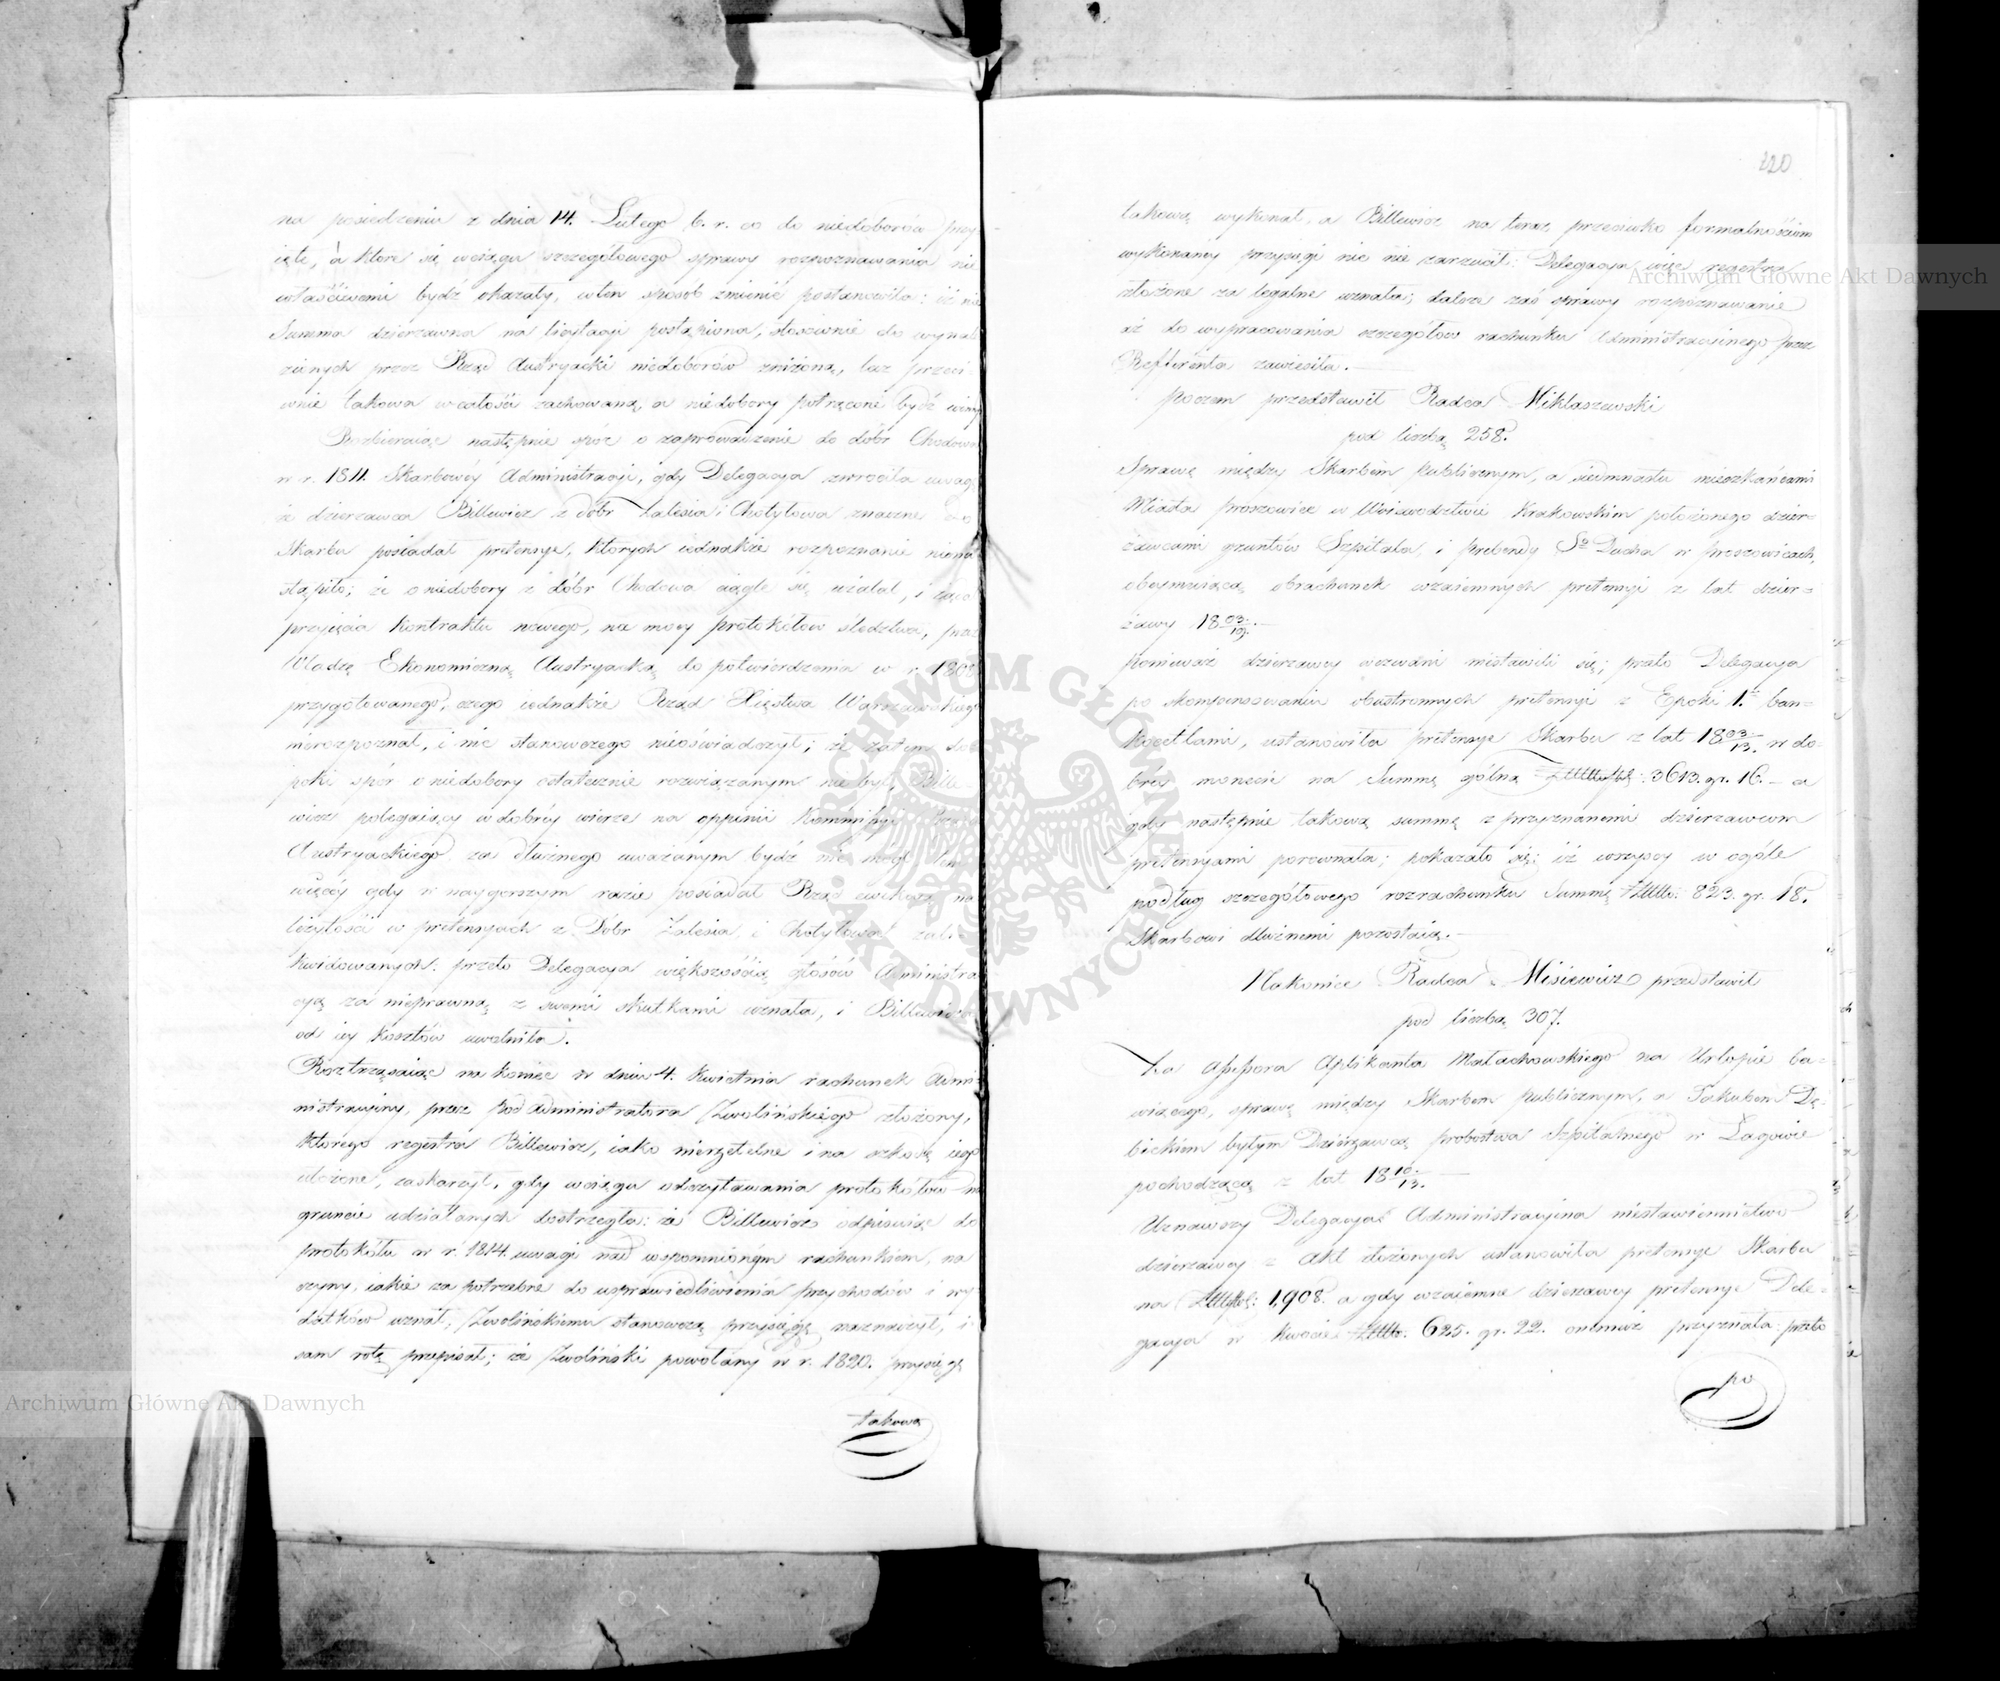 na posiedzeniu z dnia 14. Lutego b. r. co do niedoborów przy
ięte, a które się wciągu szczegółowego sprawy rozpoznawania nie
właściwemi bydź okazały, wten sposób zmienić postanowiła: iż nie
Summa dzierzawna na licytacyi postąpiona, stosownie do wynale
zionych przez Rząd Austryacki niedoborów zniżoną, lecz przeci
wnie takowa wcałości zachowaną, a niedobory potrącone bydź winny
Rozbieraiąc następnie spór o zaprowadzenie do dóbr Chodowa
w r. 1811. Skarbowéy Administracyi, gdy Delegacya zwróciła uwagę
iż dzierzawca Billewicz z dóbr Zalesia i Chotyłowa znaczne do
Skarbu posiadał pretensye, których iednakże rozpoznanie nienа
stąpiło; że o niedobory z dóbr Chodowa ciągle się użalał, i żąda
przyięcia kontraktu nowego, na mocy protokółów śledztwa, przez
Władzę Ekonomiczną Austryacką do potwierdzenia w r. 1808
przygotowanego, czego iednakże Rząd Xięstwa Warszawskiego
nierozpoznał, i nic stanowczego nieoświadczył; że zatem do
póki spór o niedobory ostatecznie rozwiązanym nie był, Bille-
wicz polegaiący w dobréy wierze na oppinii Kommissyi Rządu
Austryackiego za dłużnego uważanym bydź nie mógł tem
więcéy gdy w naygorszym razie posiadał Rząd
leżytości w pretensyach z Dóbr Zalesia i Chotyłowa zali-
kwidowanych: przeto Delegacya większością głosów Administra
cyę za nieprawną z swemi skutkami uznała, i Billewicza
od iéy kosztów uwolniła.
Roztrząsaiąc na koniec w dniu 4. Kwietnia rachunek Admi-
nistracyiny, przez Pod Administratora Zwolińskiego złożony,
którego regestra Billewicz, iako nierzetelne i na szkodę iego
ułożone, zaskarżył, gdy wciągu odczytawania protokółów na
gruncie udziałanych dostrzegła: że Billewicz odpisuiąc do
protokółu w r. 1814. uwagi nad wspomnionym rachunkiem, na
czyny, iakie za potrzebne do usprawiedliwienia przychodów i wy
datków uznał, Zwolińskiemu stanowczą przysięgę naznaczył, i
sam rotę przepisał; że Zwoliński powołany w r. 1820. przysięgę
takową
120
takową wykonał, a Billewicz na teraz przeciwko formalnościom
wykonanéy przysięgi nic nie zarzucił: Delegacya więc regestra
złożone za legalne uznała; dalsze zaś sprawy rozpoznawanie
aż do wypracowania szczegółów rachunku Administracyinego przez
Refferenta zawiesiła.
Poczem przedstawił Radca Miklaszewski
pod liczbą 258.
Sprawę między Skarbem Publicznym, a siedmnastu mieszkańcami
Miasta Proszowice w Woiewodztwie Krakowskim położonego dzier=
żawcami gruntów Szpitala, i prebendy Sgo Ducha w Proszowicach,
obeymuiącą obrachunek wzaiemnych pretensyi z lat dzier=
żawy 18 03/13.
Ponieważ dzierzawcy wezwani niestawili się; przeto Delegacya
po skompensowaniu obustronnych pretensyi z Epoki 1éj ban=
kocetlami, ustanowiła pretensye Skarbu z lat 18 03/13. w do=
bréy monecie na Summę ogólną : 3613. gr. 16. – a
gdy następnie takową summę z przyznanemi dzierzawcom
pretensyami porównała; pokazało się: iż wszyscy w ogóle
podług szczegółowego rozrachunku Summę : 823. gr. 18.
Skarbowi dłużnemi pozostaią.
Nakoniec Radca Misiewicz przedstawił
pod liczbą 307.
Za Assesora Aplikanta Małachowskiego na Urlopie ba=
wiącego, sprawę między Skarbem Publicznym, a Jakubem Dę=
bickim byłym Dzierżawcą probostwa Szpitalnego w Łagowie
pochodzącą z lat 18 10/13.
Uznawszy Delegacya Administracyina niestawiennictwo
dzierzawcy z Akt złożonych ustanowiła pretensye Skarbu
na : 1,908. a gdy wzaiemne dzierzawcy pretensye Dele=
gacya w kwocie : 625. gr. 22. onemuż przyznała: przeto
po
Archiwum Główne Akt Dawnych
Archiwum Główne Akt Dawnych
ARCHIWUM GŁÓWNE AKT DAWNYCH